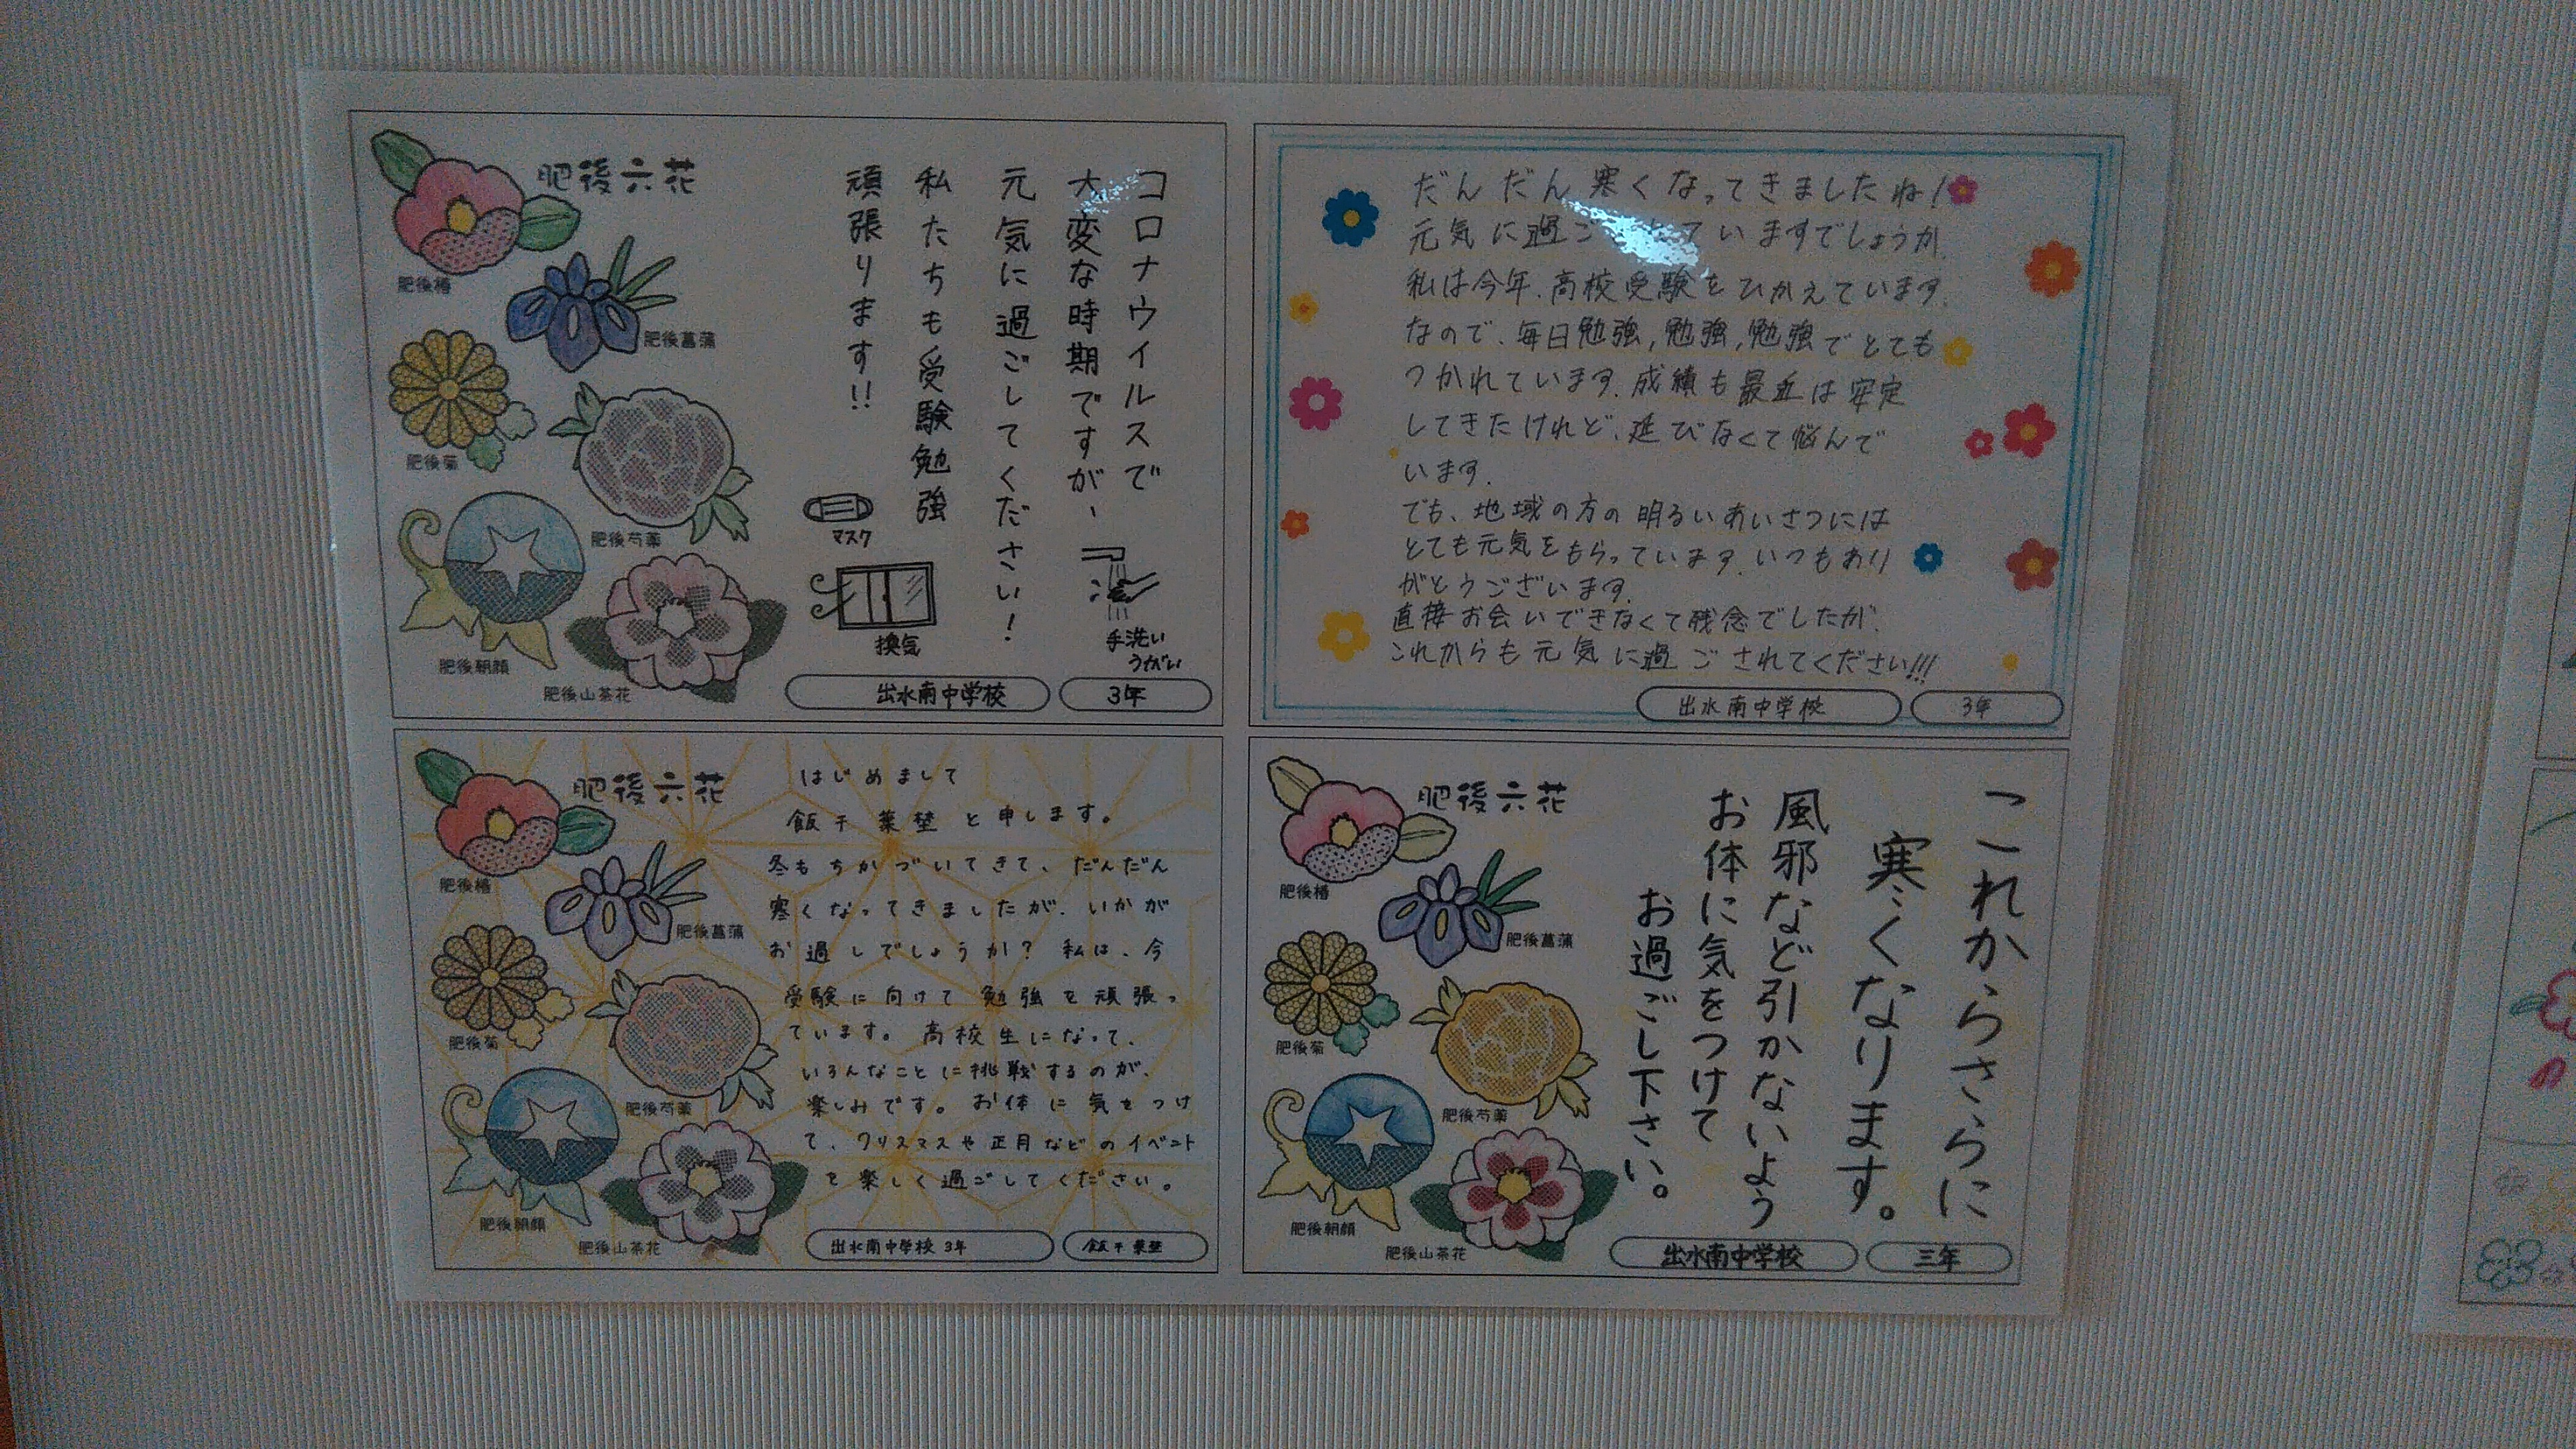 肥後六花
肥後椿
肥後菖蒲
肥後菊
肥後芍薬
肥後朝顔
肥後山茶花
コロナウイルスで
大変な時期ですが、
元気に過ごしてください!
私たちも受験勉強
頑張ります!!
マスク
換気
手洗い
うがい
出水南中学校
3年
だんだん寒くなってきましたね!
元気に過ご ていますでしょうか.
私は今年、高校受験をひかえています.
なので、毎日勉強,勉強,勉強でとても
つかれています.成績も最近は安定
してきたけれど、延びなくて悩んで
います.
でも、地域の方の明るいあいさつには
とても元気をもらっています.いつもあり
がとうございます.
直接お会いできなくて残念でしたが、
これからも元気に過ごされてください!!!
出水南中学校
3年
肥後六花
肥後椿
肥後菖蒲
肥後菊
肥後芍薬
肥後朝顔
肥後山茶花
はじめまして
飯干葉埜と申します。
冬もちかづいてきて、だんだん
寒くなってきましたが、いかが
お過しでしょうか?私は、今
受験に向けて勉強を頑張っ
ています。高校生になって、
いろんなことに挑戦するのが、
楽しみです。お体に気をつけ
て、クリスマスや正月などのイベント
を楽しく過ごしてください。
出水南中学校3年
飯干葉埜
肥後六花
肥後椿
肥後菖蒲
肥後菊
肥後芍薬
肥後朝顔
肥後山茶花
これからさらに
寒くなります。
風邪など引かないよう
お体に気をつけて
お過ごし下さい。
出水南中学校
三年